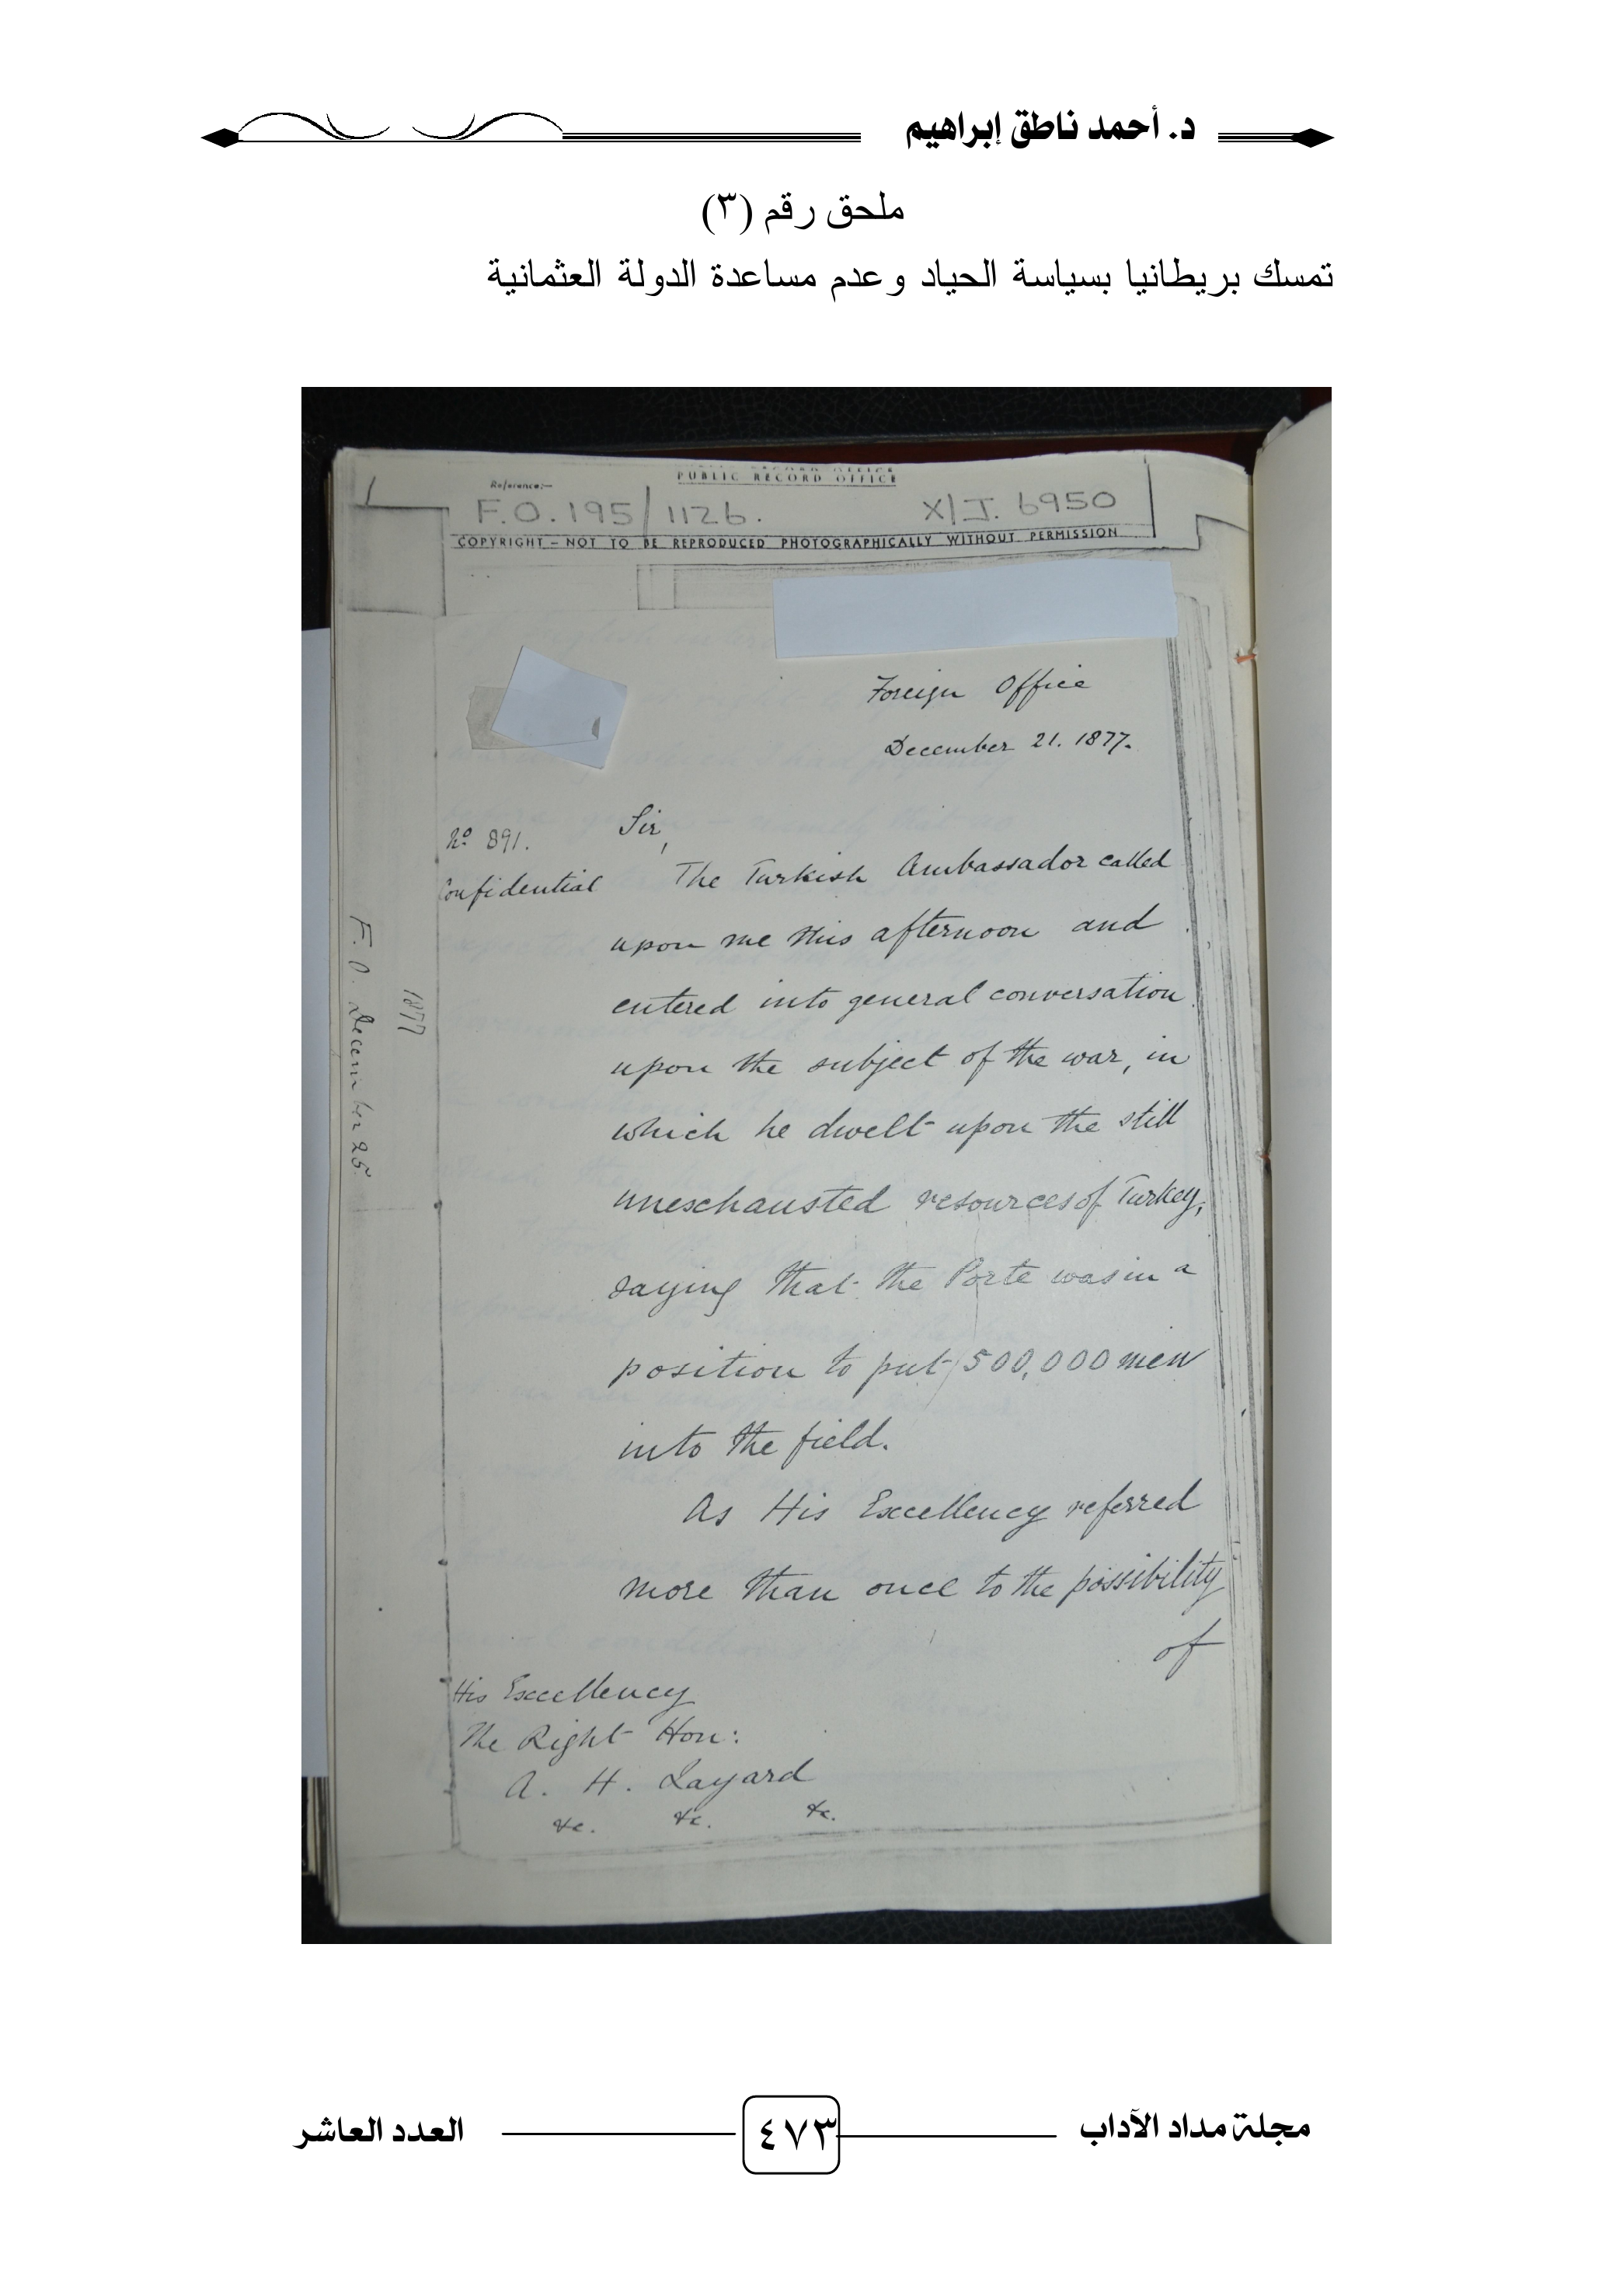 د. أحمد ناطق إبراهيم
ملحق رقم (٣)
تمسك بريطانيا بسياسة الحياد وعدم مساعدة الدولة العثمانية
PUBLIC RECORD OFFICE
Reference:-
F.O. 195/1126. X/J. 6950
COPYRIGHT - NOT TO BE REPRODUCED PHOTOGRAPHICALLY WITHOUT PERMISSION
Foreign Office
December 21. 1877.
No 891.
Confidential
Sir,
The Turkish Ambassador called
upon me this afternoon and
entered into general conversation
upon the subject of the war, in
which he dwelt upon the still
unexhausted resources of Turkey,
saying that the Porte was in a
position to put 500,000 men
into the field.
As His Excellency referred
more than once to the possibility
of
His Excellency
The Right Hon:
A. H. Layard
&c. &c. &c.
1877
F. O. December 25.
مجلة مداد الآداب
٤٧٣
العدد العاشر